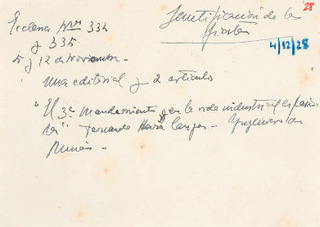 28
Santificación de las
fiestas
4/12/28
Ecclesia nºs 334
y 335
5 y 12 de Noviembre -
Una editorial y 2 artículos
"El 3er mandamiento en la vida industrial española" Fernando María - Ingeniero de
Minas -